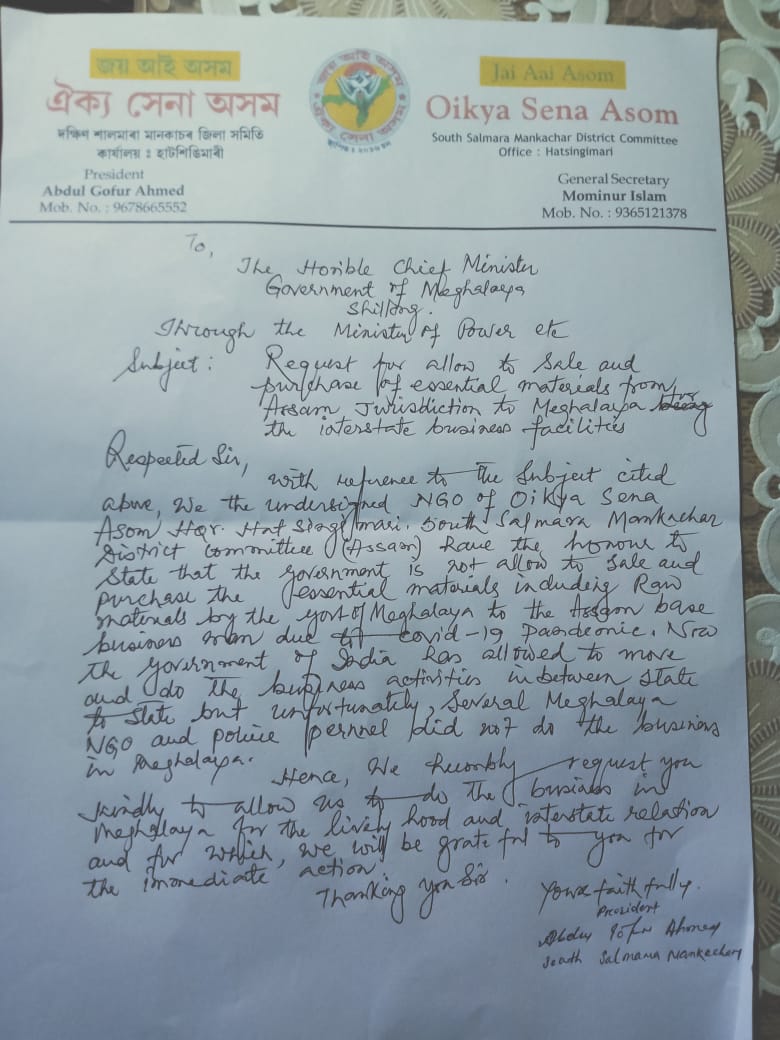 জয় আই অসম
ঐক্য সেনা অসম
দক্ষিণ শালমাৰা মানকাচৰ জিলা সমিতি
কাৰ্যালয় : হাটশিঙিমাৰী
President
Abdul Gofur Ahmed
Mob. No. : 9678665552
জয় আই অসম
ঐক্য সেনা অসম
Jai Aai Asom
Oikya Sena Asom
South Salmara Mankachar District Committee
Office : Hatsingimari
General Secretary
Mominur Islam
Mob. No. : 9365121378
To,
The Hon'ble Chief Minister
Government of Meghalaya
Shillong.
Through the Minister of Power etc
Subject : Request for allow to Sale and
purchase of essential materials from
Assam Jurisdiction to Meghalaya for
the interstate business facilities
Respected Sir,
with reference to the Subject cited
above, We the undersigned NGO of Oikya Sena
Asom Hqr. Hat Singimari. South Salmara Mankachar
District Committee (Assam) have the honour to
State that the Government is not allow to Sale and
purchase the essential materials including Raw
materials by the govt of Meghalaya to the Assam base
business man due to covid-19 Pandemic. Now
the Government of India has allowed to move
and do the business activities in between state
to state but unfortunately, Several Meghalaya
NGO and police pernnel did not do the business
in Meghalaya.
Hence, We humbly request you
kindly to allow us to do the business in
Meghalaya for the lively hood and interstate relation
and for which, we will be grate ful to you for
the immediate action.
Thanking You Sir.
Yours faithfully.
President
Abdul Gofur Ahmed
South Salmara Mankachar